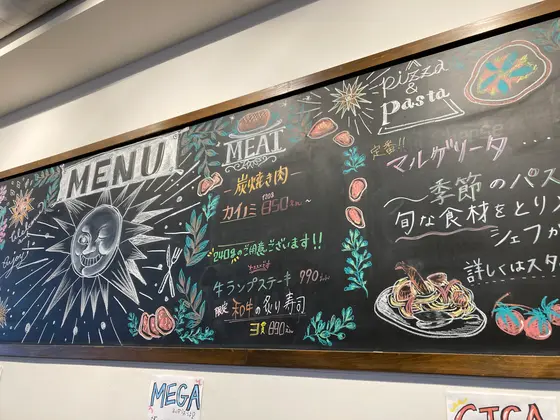 MENU
MEAT
炭焼き肉
カイノミ 850
240gのご用意ございます!!
牛ランプステーキ 990
限定 和牛の炙り寿司
890
pizza
&
Pasta
定番!!
マルゲリータ
〜季節のパス
旬な食材をとり入
シェフが
詳しくはスタ
MEGA
GIGA